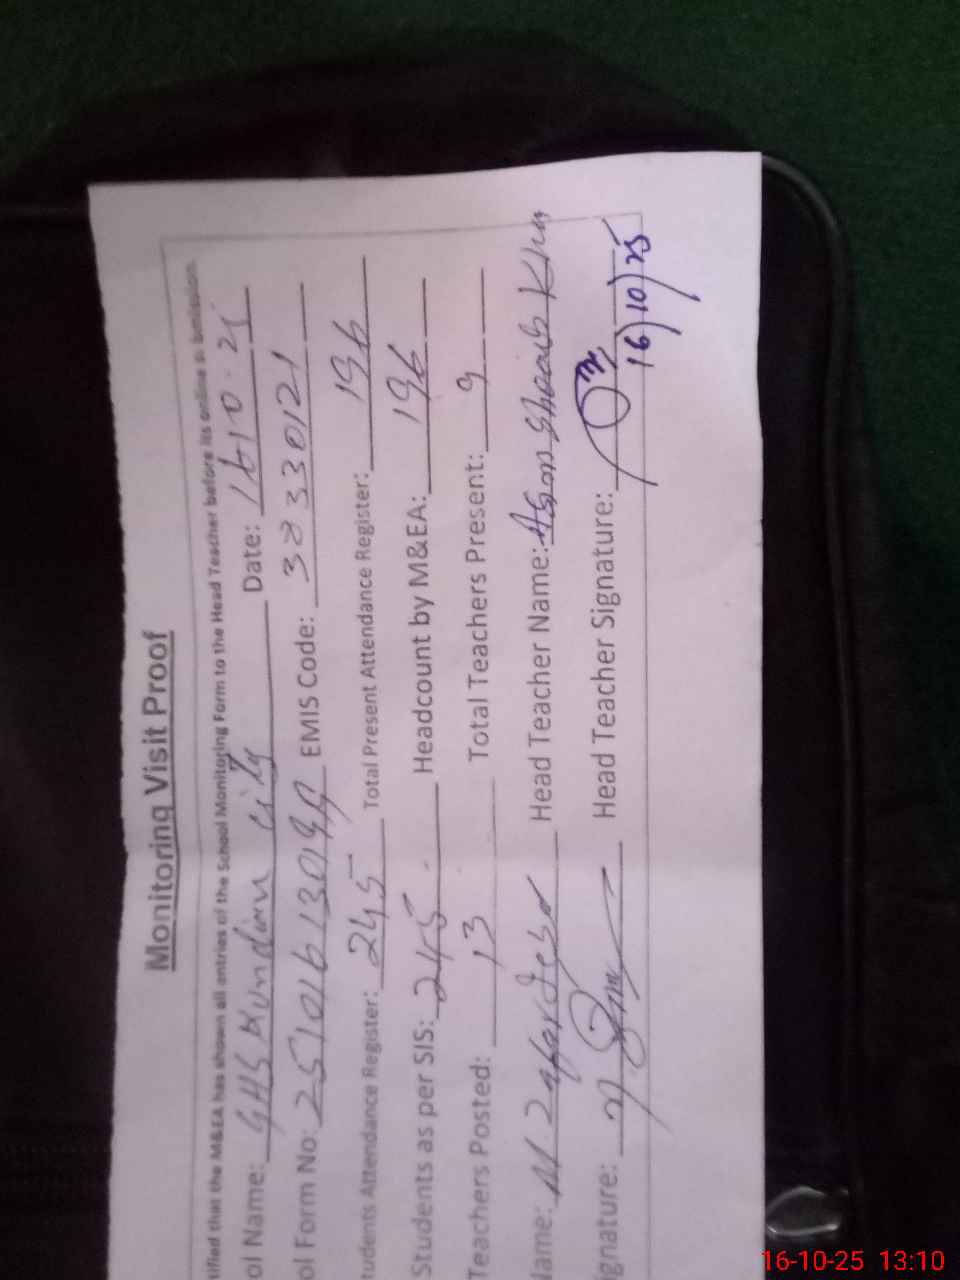 Monitoring Visit Proof
tified that the M&EA has shown all entries of the School Monitoring Form to the Head Teacher before its online submission.
ol Name: GHS Kundian city Date: 16-10-25
ol Form No: EMIS Code: 38330121
tudents Attendance Register: 245 Total Present Attendance Register: 196
Students as per SIS: 245 Headcount by M&EA: 196
Teachers Posted: 13 Total Teachers Present: 9
Name: M Head Teacher Name: Shoaib Khan
ignature: Head Teacher Signature:
16/10/25
16-10-25 13:10